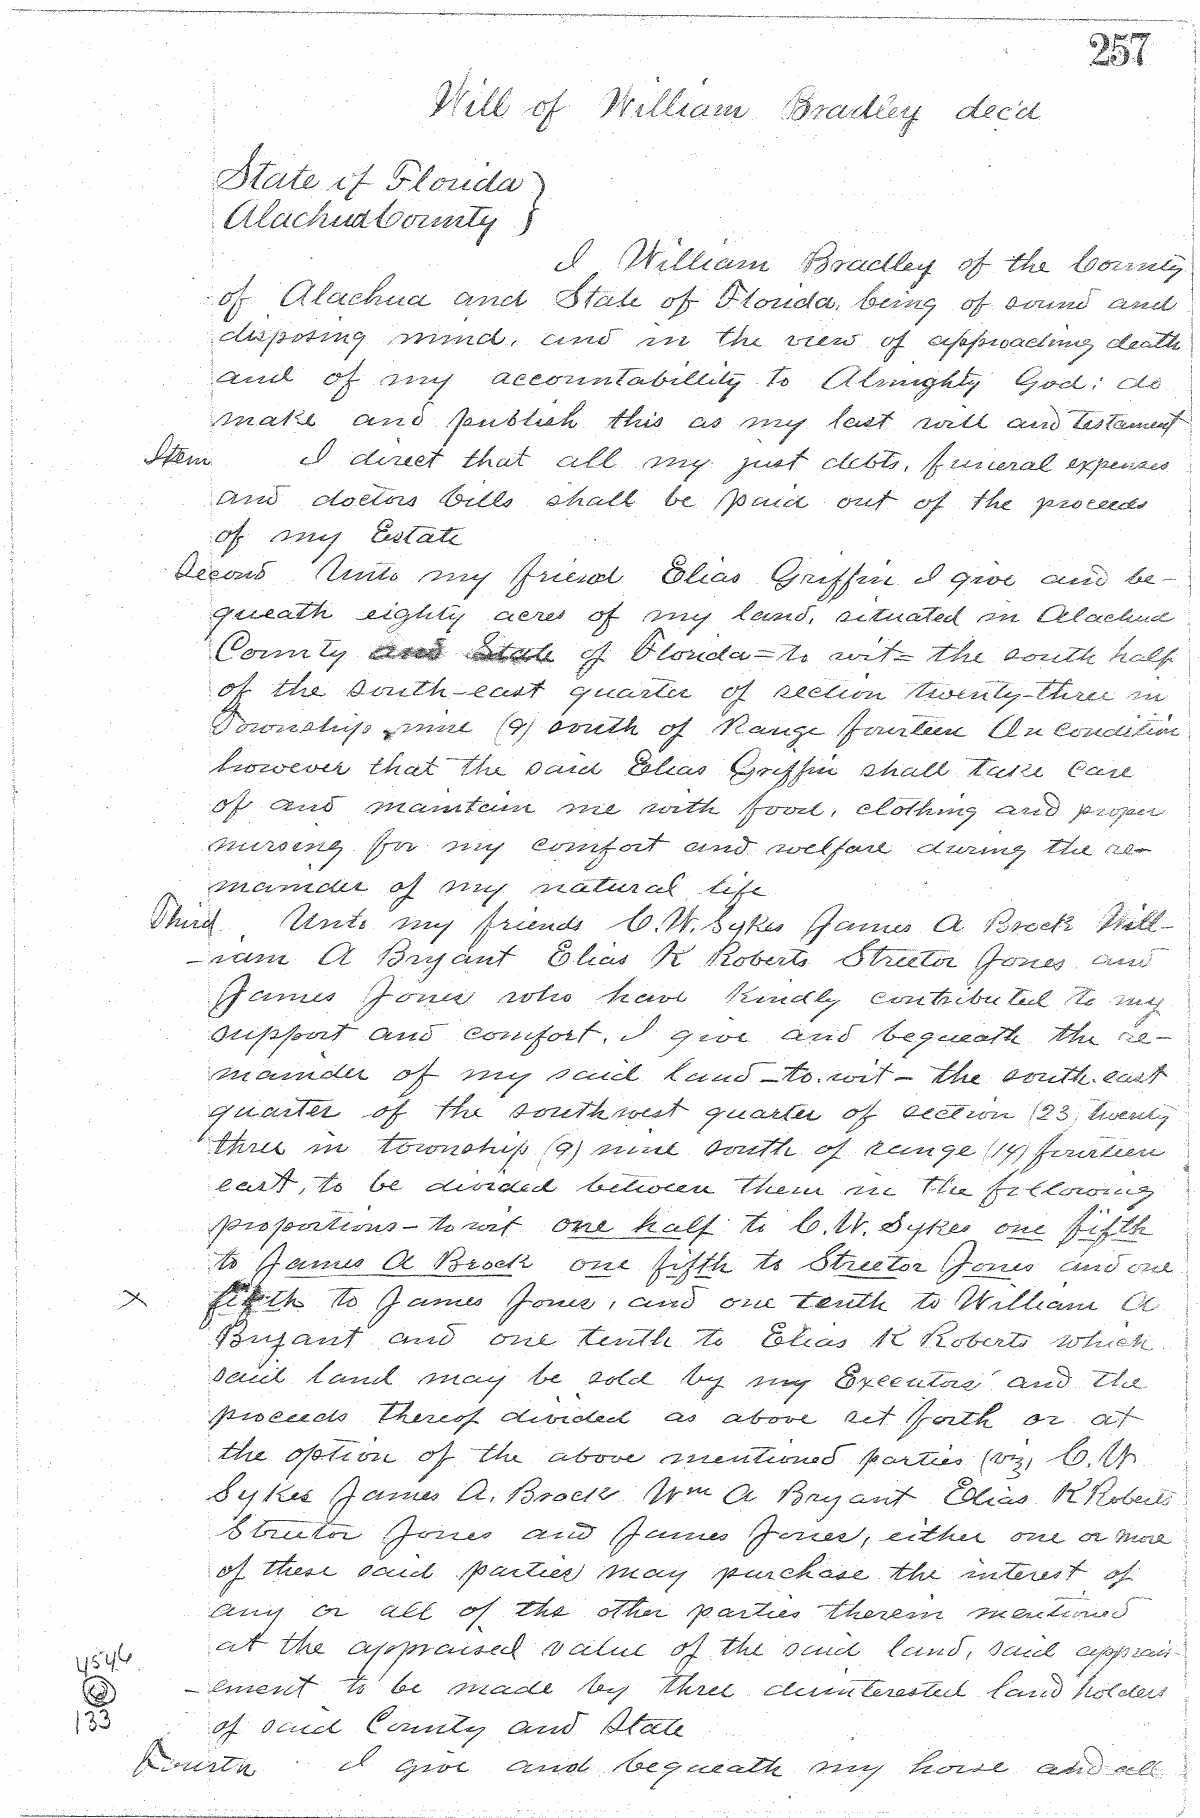 257
Will of William Bradley dec'd
State of Florida }
Alachua County }
I William Bradley of the County
of Alachua and State of Florida, being of sound and
disposing mind, and in the view of approaching death
and of my accountabillity to Almighty God: do
make and publish this as my last will and Testament
Item I direct that all my just debts, funeral expenses
and doctors bills shall be paid out of the proceeds
of my Estate
Second Unto my friend Elias Griffin I give and be-
queath eighty acres of my land, situated in Alachua
County and State of Florida = to wit = the south half
of the south-east quarter of section twenty-three in
Township nine (9) south of Range fourteen On condition
however that the said Elias Griffin shall take care
of and maintain me with food, clothing and proper
nursing for my comfort and welfare during the re-
mainder of my natural life
Third Unto my friends C. W. Sykes James A Brock Will-
-iam A Bryant Elias K Roberts Streetor Jones and
James Jones who have kindly contributed to my
support and comfort, I give and bequeath the re-
mainder of my said land - to. wit - the south. east
quarter of the southwest quarter of section (23) twenty
three in township (9) nine south of range (14) fourteen
east, to be divided between them in the following
proportions - to wit one half to C. W. Sykes one fifth
to James A Brock one fifth to Streetor Jones and one
x fifth to James Jones, and one tenth to William A
Bryant and one tenth to Elias K Roberts which
said land may be sold by my Executors and the
proceeds thereof divided as above set forth or at
the option of the above mentioned parties (viz, C. W
Sykes James A. Brock Wm A Bryant Elias K Roberts
Streetor Jones and James Jones, either one or more
of these said parties may purchase the interest of
any or all of the other parties therein mentioned
at the appraised value of the said land, said apprais-
-ement to be made by three disinterested land holders
of said County and State
4546
@
133
Fourth I give and bequeath my horse and all